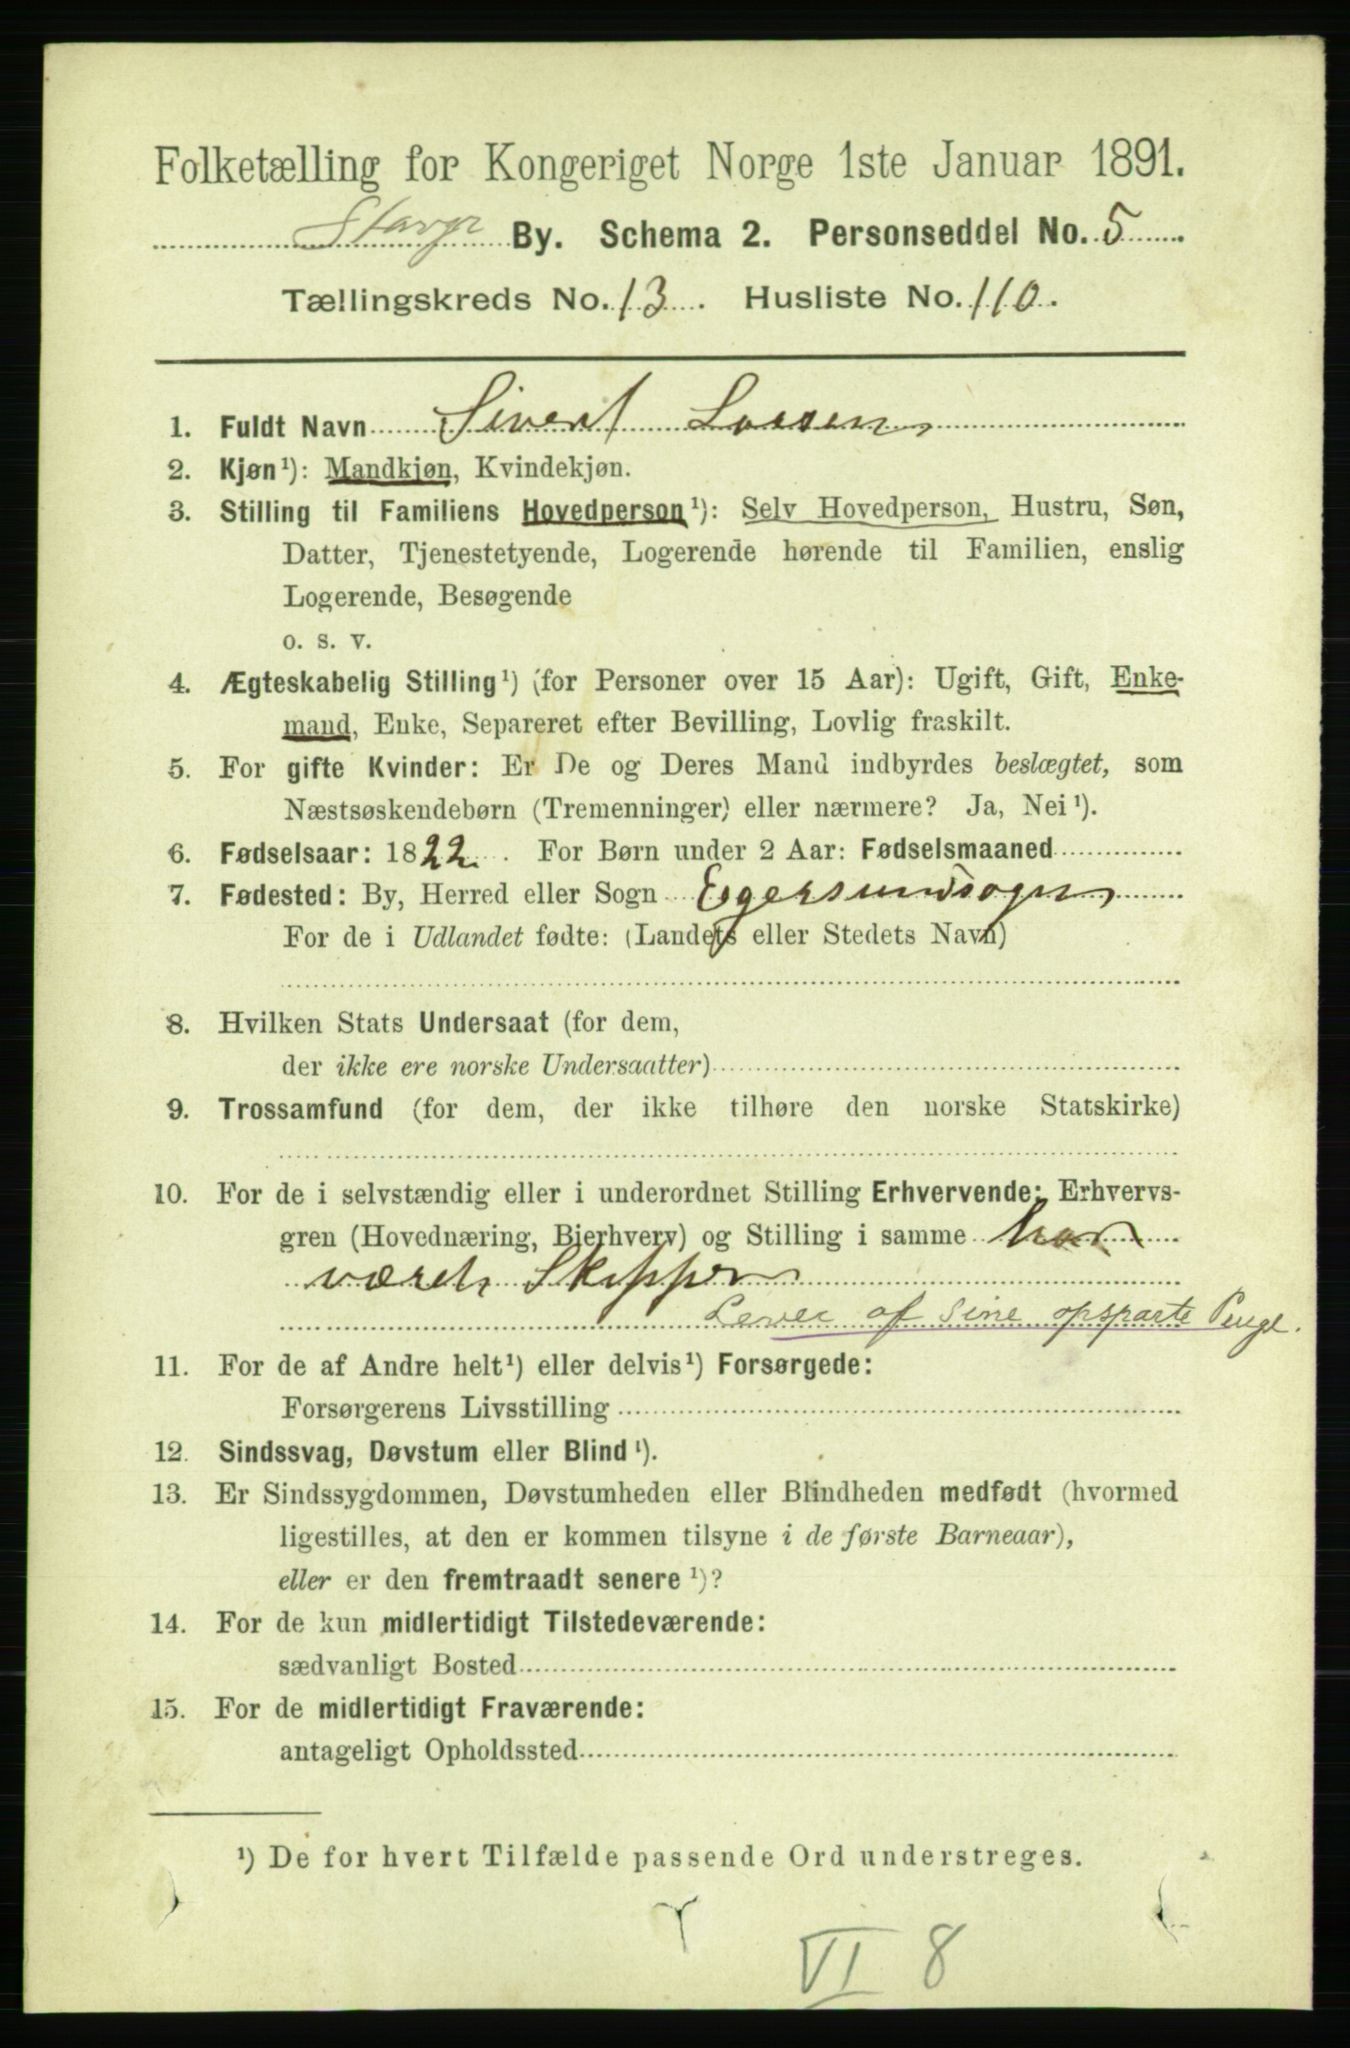 Folketælling for Kongeriget Norge 1ste Januar 1891.
Stavgr By. Schema 2. Personseddel No. 5
Tællingskreds No. 13. Husliste No. 110.
1. Fuldt Navn Sivert
2. Kjøn¹): Mandkjøn, Kvindekjøn.
3. Stilling til Familiens Hovedperson¹): Selv Hovedperson, Hustru, Søn,
Datter, Tjenestetyende, Logerende hørende til Familien, enslig
Logerende, Besøgende
o. s. v.
4. Ægteskabelig Stilling¹) (for Personer over 15 Aar): Ugift, Gift, Enke-
mand, Enke, Separeret efter Bevilling, Lovlig fraskilt.
5. For gifte Kvinder: Er De og Deres Mand indbyrdes beslægtet, som
Næstsøskendebørn (Tremenninger) eller nærmere? Ja, Nei¹).
6. Fødselsaar: 1822. For Børn under 2 Aar: Fødselsmaaned
7. Fødested: By, Herred eller Sogn Egersundsogn
For de i Udlandet fødte: (Landets eller Stedets Navn)
8. Hvilken Stats Undersaat (for dem,
der ikke ere norske Undersaatter)
9. Trossamfund (for dem, der ikke tilhøre den norske Statskirke)
10. For de i selvstændig eller i underordnet Stilling Erhvervende: Erhvervs-
gren (Hovednæring, Bierhverv) og Stilling i samme har
været Skipper
Lever af sine opsparte Penge.
11. For de af Andre helt¹) eller delvis¹) Forsørgede:
Forsørgerens Livsstilling
12. Sindssvag, Døvstum eller Blind¹).
13. Er Sindssygdommen, Døvstumheden eller Blindheden medfødt (hvormed
ligestilles, at den er kommen tilsyne i de første Barneaar),
eller er den fremtraadt senere¹)?
14. For de kun midlertidigt Tilstedeværende:
sædvanligt Bosted
15. For de midlertidigt Fraværende:
antageligt Opholdssted
¹) De for hvert Tilfælde passende Ord understreges.
VI 8